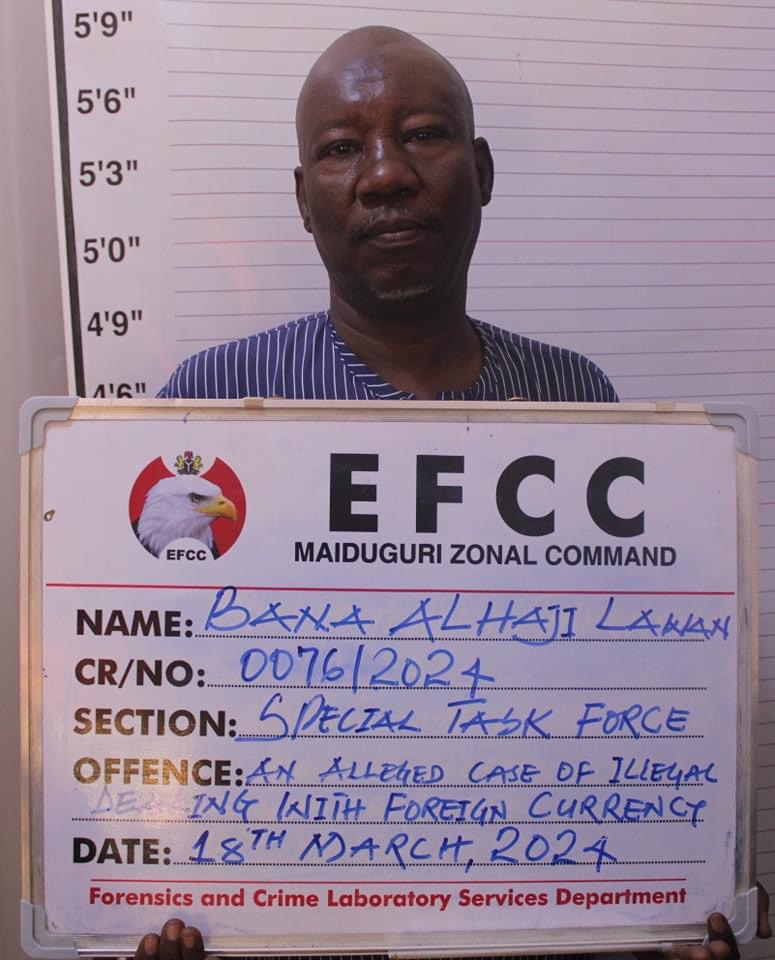 5'9"
5'6"
5'3"
5'0"
4'9"
4'6"
EFCC
EFCC
MAIDUGURI ZONAL COMMAND
NAME: BANA ALHAJI LAWAN
CR/NO: 0076/2024
SECTION: SPECIAL TASK FORCE
OFFENCE: AN ALLEGED CASE OF ILLEGAL
DEALING WITH FOREIGN CURRENCY
DATE: 18TH MARCH, 2024
Forensics and Crime Laboratory Services Department